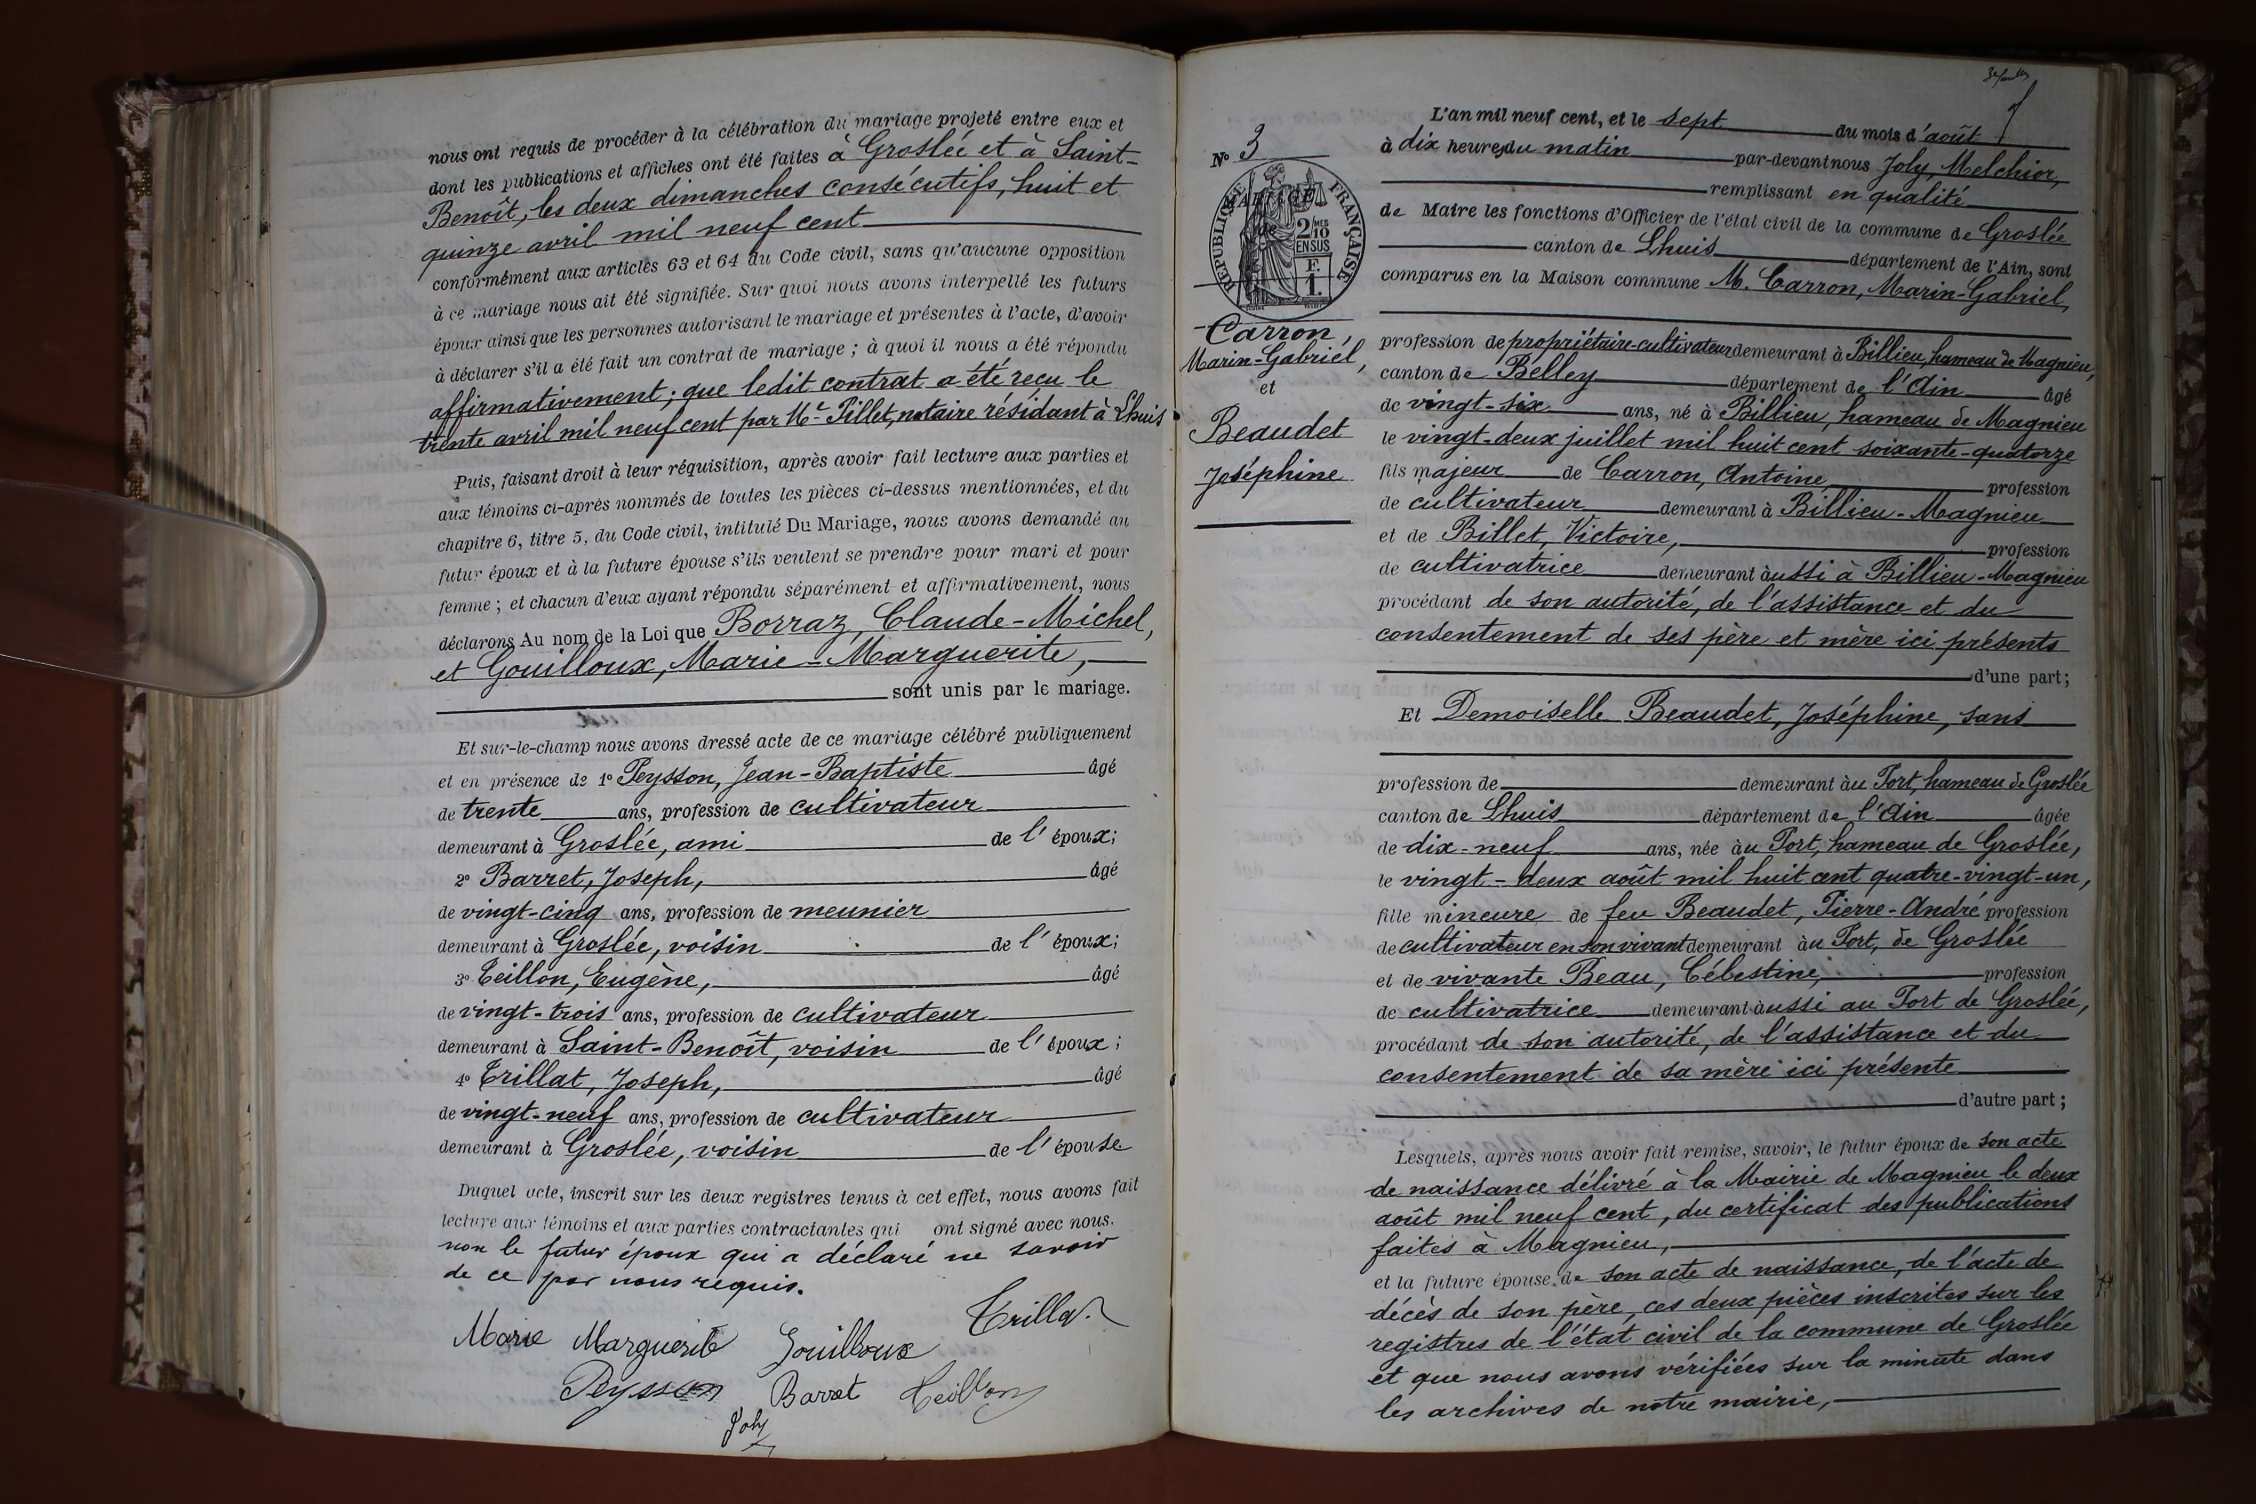 nous ont requis de procéder à la célébration du mariage projeté entre eux et
dont les publications et affiches ont été faites à Groslée et à Saint-
Benoît, les deux dimanches consécutifs, huit et
quinze avril mil neuf cent
conformément aux articles 63 et 64 du Code civil, sans qu'aucune opposition
à ce mariage nous ait été signifiée. Sur quoi nous avons interpellé les futurs
époux ainsi que les personnes autorisant le mariage et présentes à l'acte, d'avoir
à déclarer s'il a été fait un contrat de mariage ; à quoi il nous a été répondu
affirmativement ; que ledit contrat a été reçu le
trente avril mil neuf cent par Me Pillet, notaire résidant à Lhuis
Puis, faisant droit à leur réquisition, après avoir fait lecture aux parties et
aux témoins ci-après nommés de toutes les pièces ci-dessus mentionnées, et du
chapitre 6, titre 5, du Code civil, intitulé Du Mariage, nous avons demandé au
futur époux et à la future épouse s'ils veulent se prendre pour mari et pour
femme ; et chacun d'eux ayant répondu séparément et affirmativement, nous
déclarons Au nom de la Loi que Borraz, Claude-Michel,
et Gouilloux, Marie-Marguerite,
sont unis par le mariage.
Et sur-le-champ nous avons dressé acte de ce mariage célébré publiquement
et en présence de 1° Peysson, Jean-Baptiste âgé
de trente ans, profession de cultivateur
demeurant à Groslée, ami de l'époux;
2° Barret, Joseph, âgé
de vingt-cinq ans, profession de meunier
demeurant à Groslée, voisin de l'époux;
3° Teillon, Eugène, âgé
de vingt-trois ans, profession de cultivateur
demeurant à Saint-Benoît, voisin de l'époux ;
4° Trillat, Joseph, âgé
de vingt-neuf ans, profession de cultivateur
demeurant à Groslée, voisin de l'épouse
Duquel acte, inscrit sur les deux registres tenus à cet effet, nous avons fait
lecture aux témoins et aux parties contractantes qui ont signé avec nous.
non le futur époux qui a déclaré ne savoir
de ce par nous requis.
Trillat
Marie Marguerite Gouilloux
Peysson Barret Teillon
Joly
N° 3
RÉPUBLIQUE FRANÇAISE
MARIAGE
de
2/10 EN SUS
F. 1.
Carron,
Marin-Gabriel,
et
Beaudet
Joséphine
L'an mil neuf cent, et le sept du mois d'août
à dix heures du matin par-devant nous Joly, Melchior,
remplissant en qualité
de Maire les fonctions d'Officier de l'état civil de la commune de Groslée
canton de Lhuis département de l'Ain, sont
comparus en la Maison commune M. Carron, Marin-Gabriel,
profession de propriétaire-cultivateur demeurant à Billieu, hameau de Magnieu,
canton de Belley département de l'Ain âgé
de vingt-six ans, né à Billieu, hameau de Magnieu
le vingt-deux juillet mil huit cent soixante-quatorze
fils majeur de Carron, Antoine profession
de cultivateur demeurant à Billieu-Magnieu
et de Billet, Victoire, profession
de cultivatrice demeurant aussi à Billieu-Magnieu
procédant de son autorité, de l'assistance et du
consentement de ses père et mère ici présents
d'une part;
Et Demoiselle Beaudet, Joséphine, sans
profession de demeurant au Port, hameau de Groslée
canton de Lhuis département de l'Ain âgée
de dix-neuf ans, née au Port, hameau de Groslée,
le vingt-deux août mil huit cent quatre-vingt-un,
fille mineure de feu Beaudet, Pierre-André profession
de cultivateur en son vivant demeurant au Port, de Groslée
et de vivante Beau, Célestine, profession
de cultivatrice demeurant aussi au Port de Groslée,
procédant de son autorité, de l'assistance et du
consentement de sa mère ici présente
d'autre part ;
Lesquels, après nous avoir fait remise, savoir, le futur époux de son acte
de naissance délivré à la Mairie de Magnieu le deux
août mil neuf cent, du certificat des publications
faites à Magnieu,
et la future épouse, de son acte de naissance, de l'acte de
décès de son père, ces deux pièces inscrites sur les
registres de l'état civil de la commune de Groslée
et que nous avons vérifiées sur la minute dans
les archives de notre mairie,